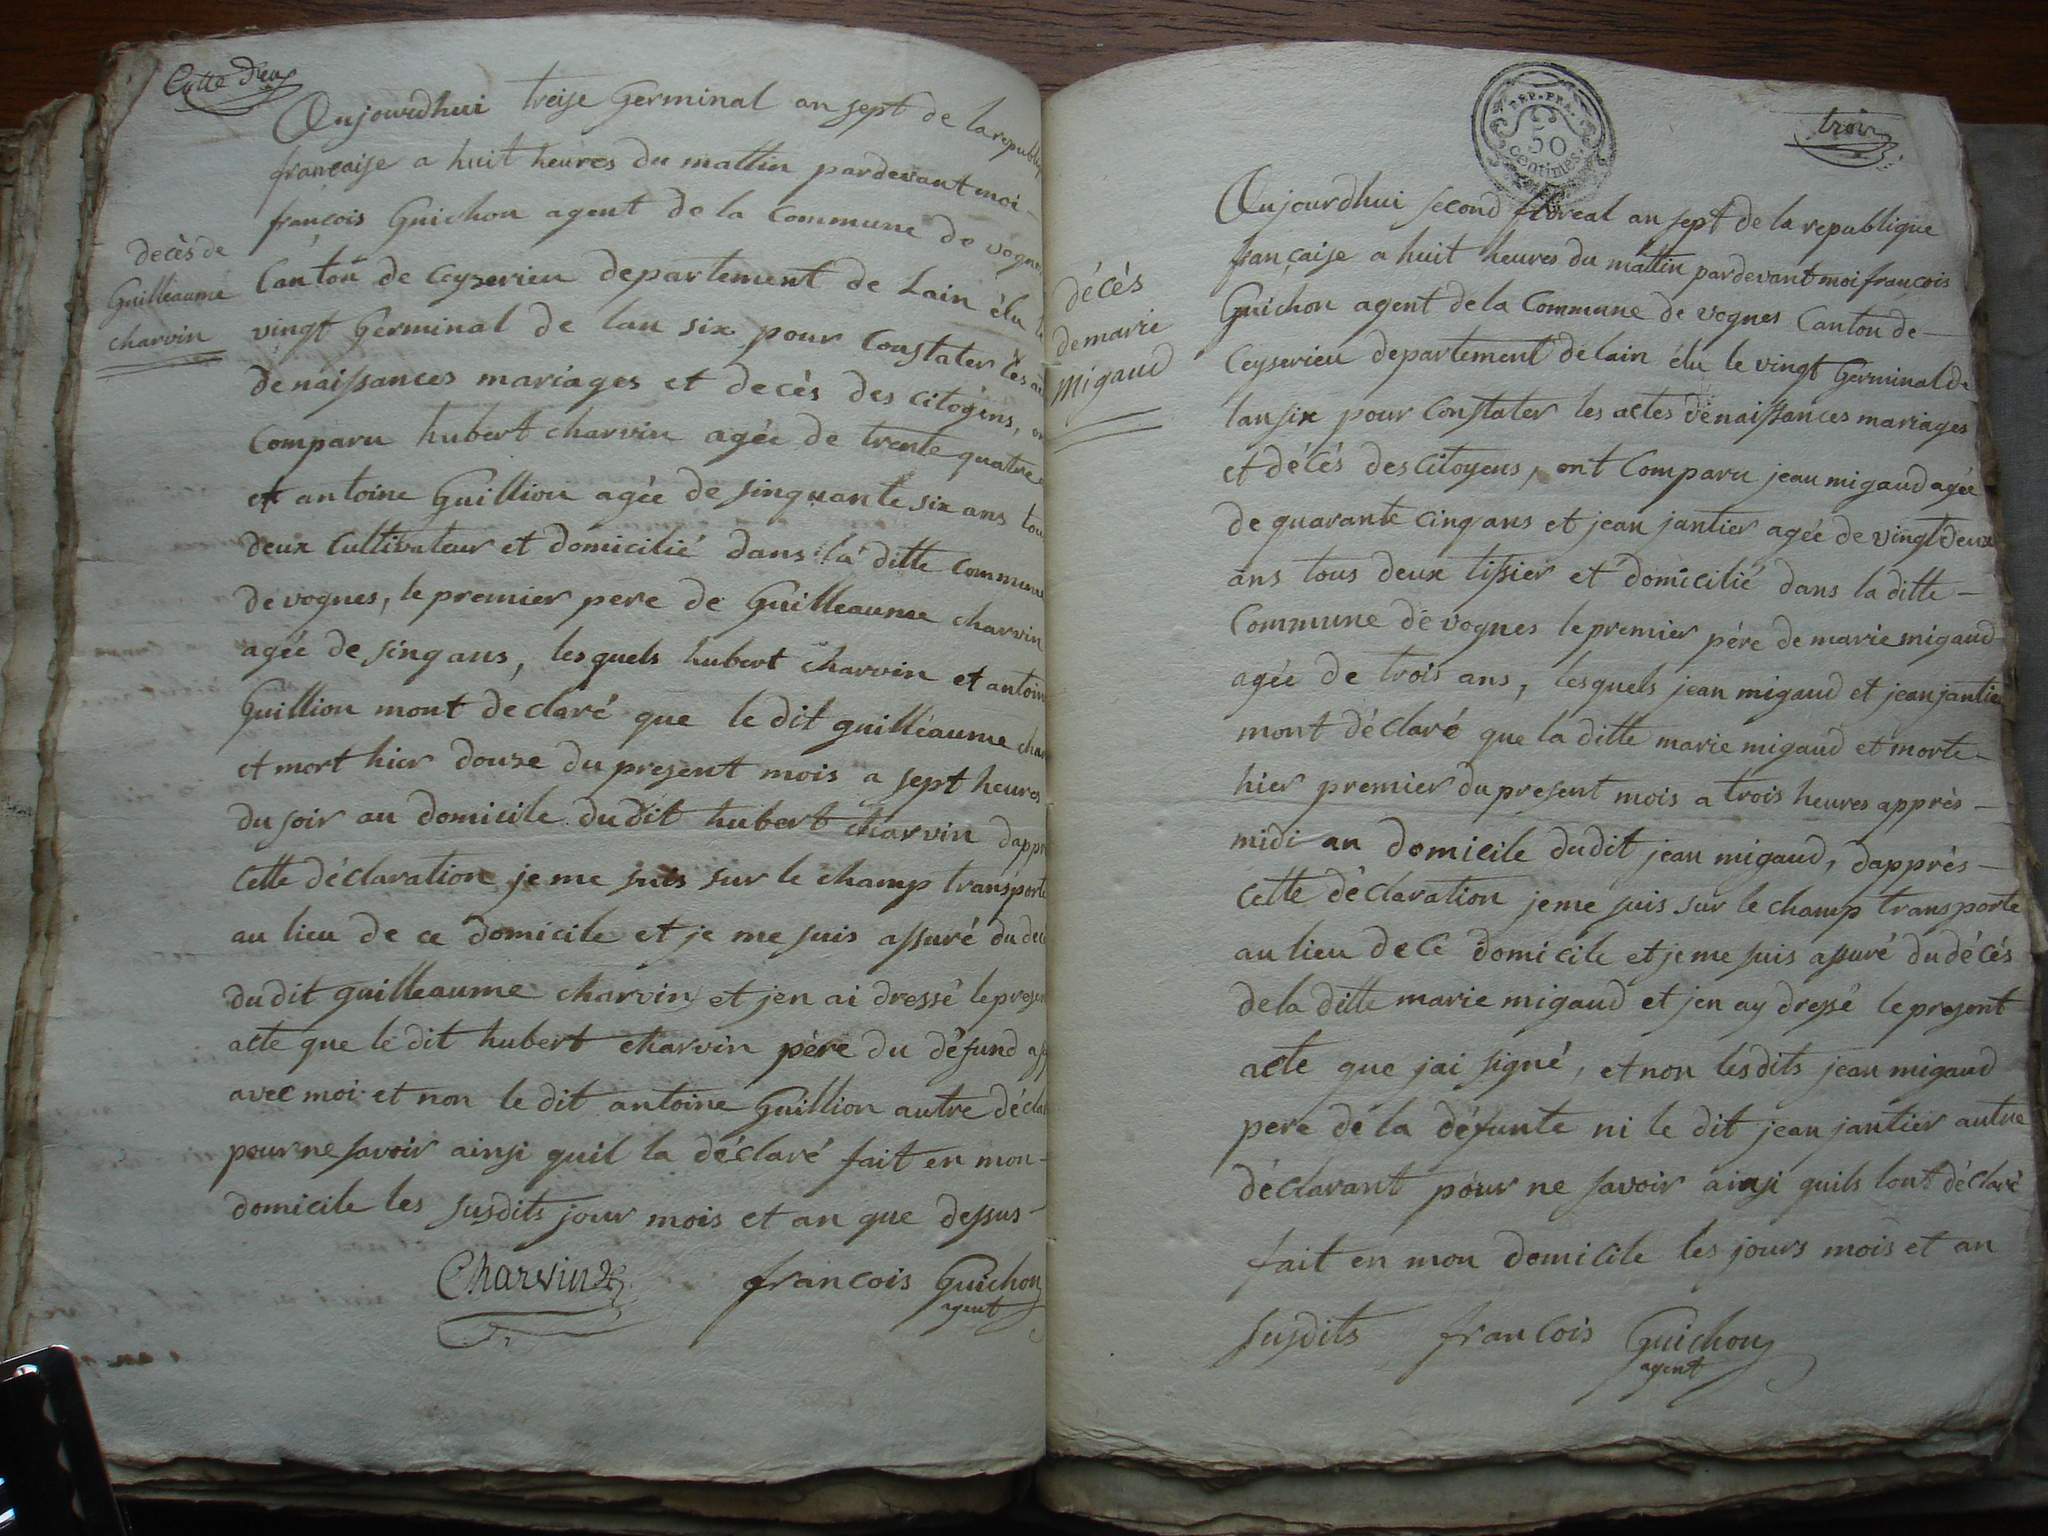 Cotte d'eu
Aujourdhui treise Germinal an sept de la republi
française a huit heures du mattin pardevant moi
françois Guichon agent de la Commune de vogne
Canton de Ceyzerieu departement de Lain élu le
vingt Germinal de lan six pour Constater les a
de naissances mariages et decès des citoyens, on
Comparu hubert charvin agée de trente quatre
et antoine Guillion agée de sinquante six ans tou
deux Cultivateur et domicilié dans la ditte Commune
de vognes, le premier pere de Guilleaume charvin
agée de sinq ans, lesquels hubert charvin et antoin
Guillion mont declaré que le dit guilleaume char
et mort hier douze du present mois a sept heures
du soir au domicile dudit hubert charvin dappr
Cette déclaration je me suis sur le champ transporté
au lieu de ce domicile et je me suis assuré du dec
dudit guilleaume charvin et jen ai dressé le presen
acte que le dit hubert charvin père du défund
avec moi et non le dit antoine Guillion autre décla
pour ne savoir ainsi quil la déclaré fait en mon
domicile les susdits jour mois et an que dessus
Charvin francois Guichon
agent
decès de
Guilleaume
charvin
REP. FRA.
50
centimes.
trois
Aujourdhui second floreal an sept de la republique
française a huit heures du mattin pardevant moi francois
Guichon agent de la Commune de vognes Canton de
Ceyserieu departement de lain élu le vingt Germinal de
lan six pour Constater les actes de naissances mariages
et décés des citoyens, ont Comparu jean migaud agée
de quarante cinq ans et jean jantier agée de vingt deux
ans tous deux tissier et domicilié dans la ditte
Commune de vognes le premier père de marie migaud
agée de trois ans, lesquels jean migaud et jean jantier
mont déclaré que la ditte marie migaud et morte
hier premier du present mois a trois heures apprès
midi au domicile dudit jean migaud, dapprès
cette déclaration je me suis sur le champ transporte
au lieu de ce domicile et je me suis assuré du décés
de la ditte marie migaud et jen ay dressé le present
acte que jai signé, et non lesdits jean migaud
pere de la défunte ni le dit jean jantier autre
déclarant pour ne savoir ainsi quils lont déclaré
fait en mon domicile les jours mois et an
susdits francois Guichon
agent
décès
de marie
migaud